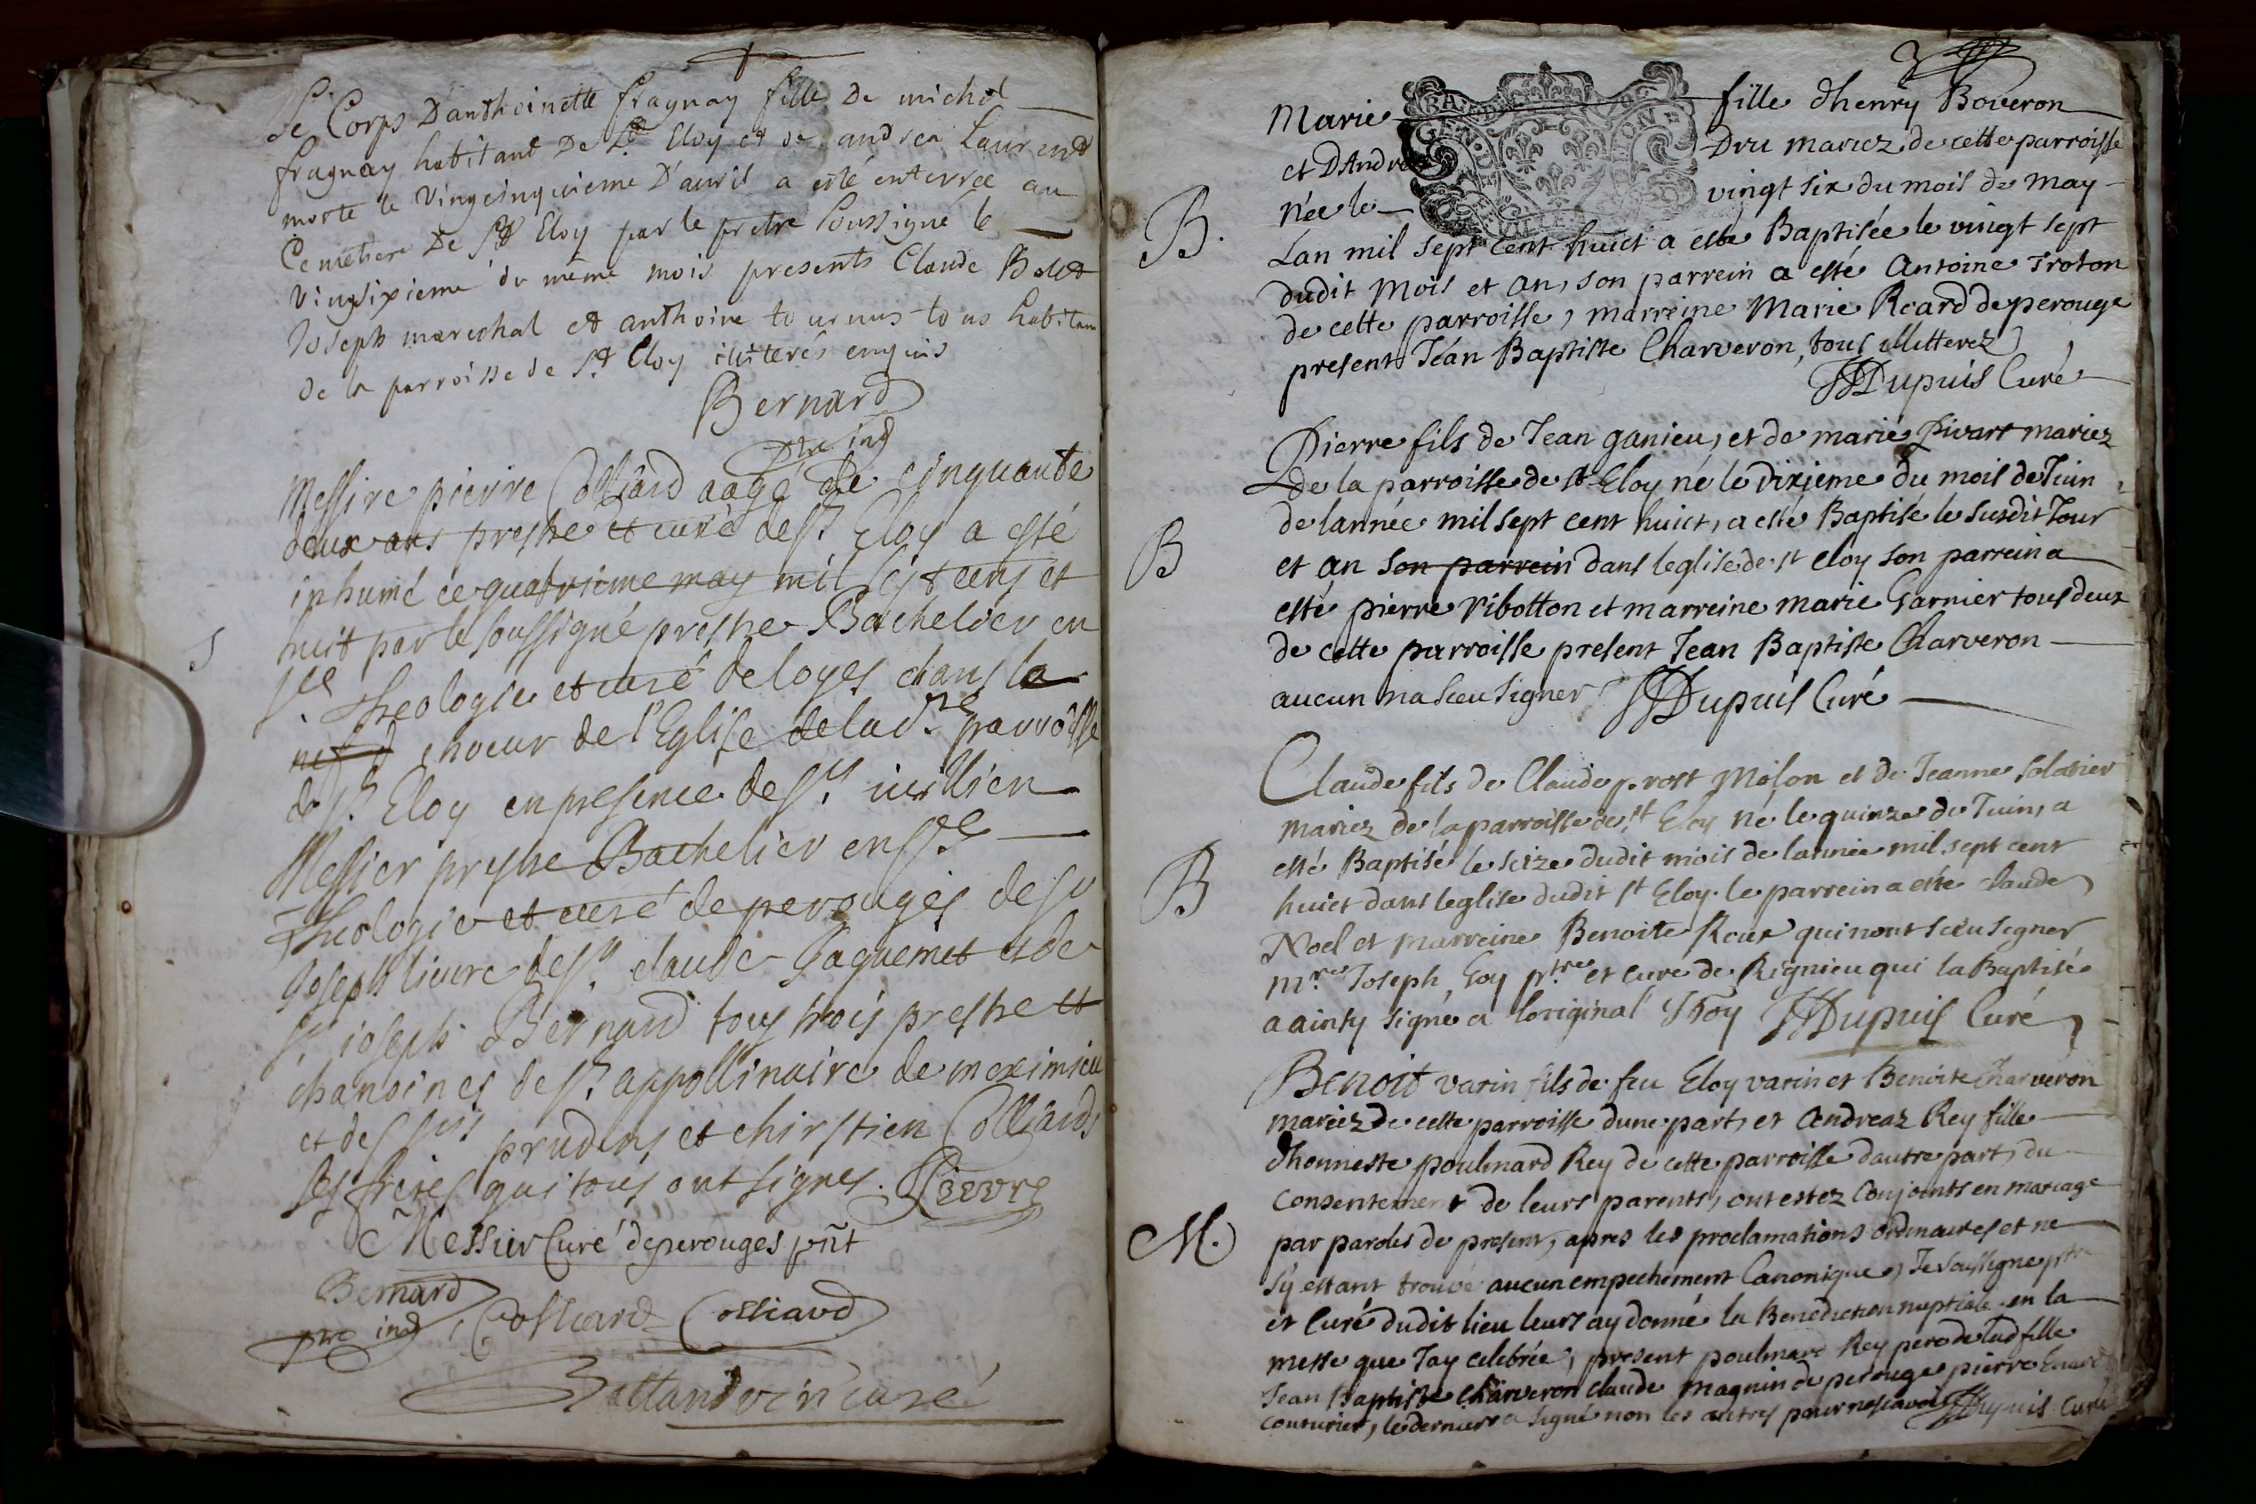 Le Corps D'anthoinette fragnay fille De michel
fragnay habitant De St Eloy et de andrea Laurend
morte le Vingcinquieme D'auril a esté enterrée au
Cemetiere De St Eloy par le pretre soussigné le
Vingsixieme du même mois presents Claude Bolet
Joseph marechal et anthoine tournus tous habitans
de la parroisse de St Eloy illiterés enquis
Bernard
ptre ind
Messire pierre Colliard aagé de cinquante
deux ans prestre et curé de St Eloy a esté
inhumé ce quatrieme may mil sept cens et
huit par le soussigné prestre Bachelier en
Ste Theologie et curé de loyes dans la
nef d choeur de l'Eglise de lad.te parroisse
de St Eloy en presence de Sr
Messier prestre Bachelier en Ste
Theologie et curé de perouges de Sr
Joseph lieure de Sr claude Jaquemet et de
Sr ioseph Bernard tous trois prestre et
chanoines de St appollinaire de meximieu
et des srs prudens et chirstien Colliards
ses freres qui tous ont signes. Lievre
Messier Curé de perouges pñt
Bernard
ptre ind
Colliard Colliard
Ballandrin curé
Marie fille dhenry Boveron
et DAndrea Dru mariez de cette parroisse
née le vingt six du mois de may
B.
Lan mil sept cent huict a esté Baptisée le vingt sept
dudit mois et an, son parrein a esté Antoine Troton
de cette parroisse, marreine Marie Ricard de perouge
present Jéan Baptiste Charveron, tous illitterez
Dupuis Curé
Pierre fils de Jean ganieu, et de marie Pivart mariez
de la parroisse de st Eloy né le Dixieme du mois de Juin
de lannée mil sept cent huict, a esté Baptisé le susdit Jour
B
et an son parrein dans leglise de st eloy son parrein a
esté pierre Ribotton et marreine marie Garnier tous deux
de cette parroisse present Jean Baptiste Charveron
aucun na sceu signer Dupuis Curé
Claude fils de Claude prost Molon et de Jeanne solatier
mariez de la parroisse de st Eloy né le quinze de Juin, a
esté Baptisé le seize dudit mois de lannée mil sept cent
B
huict dans leglise dudit st Eloy. le parrein a esté claude
Noel et marreine Benoite Roux qui nont sceu signer
m.re Joseph Goy p.tre et curé de Rignieu qui la Baptisé
a ainsy signé a loriginal J Goy Dupuis Curé
Benoit varin fils de feu Eloy varin et Benoite Charveron
mariez de cette parroisse dune part, et Andreaz Rey fille
dhonneste poulmard Rey de cette parroisse dautre part, du
consentement de leurs parents, ont estez conjoints en mariage
M.
par paroles de present, apres les proclamations ordinaires et ne
sy estant trouvé aucun empechement Canonique, Je soussigne ptre
et Curé dudit lieu leurs ay donné la Benediction nuptiale en la
messe que Jay celebrée, present poulmard Rey pere de lad fille
Jean Baptiste Charveron claude magnin de perouge pierre
couturier, le dernier a signé non les autres pour ne scavoir Dupuis Curé